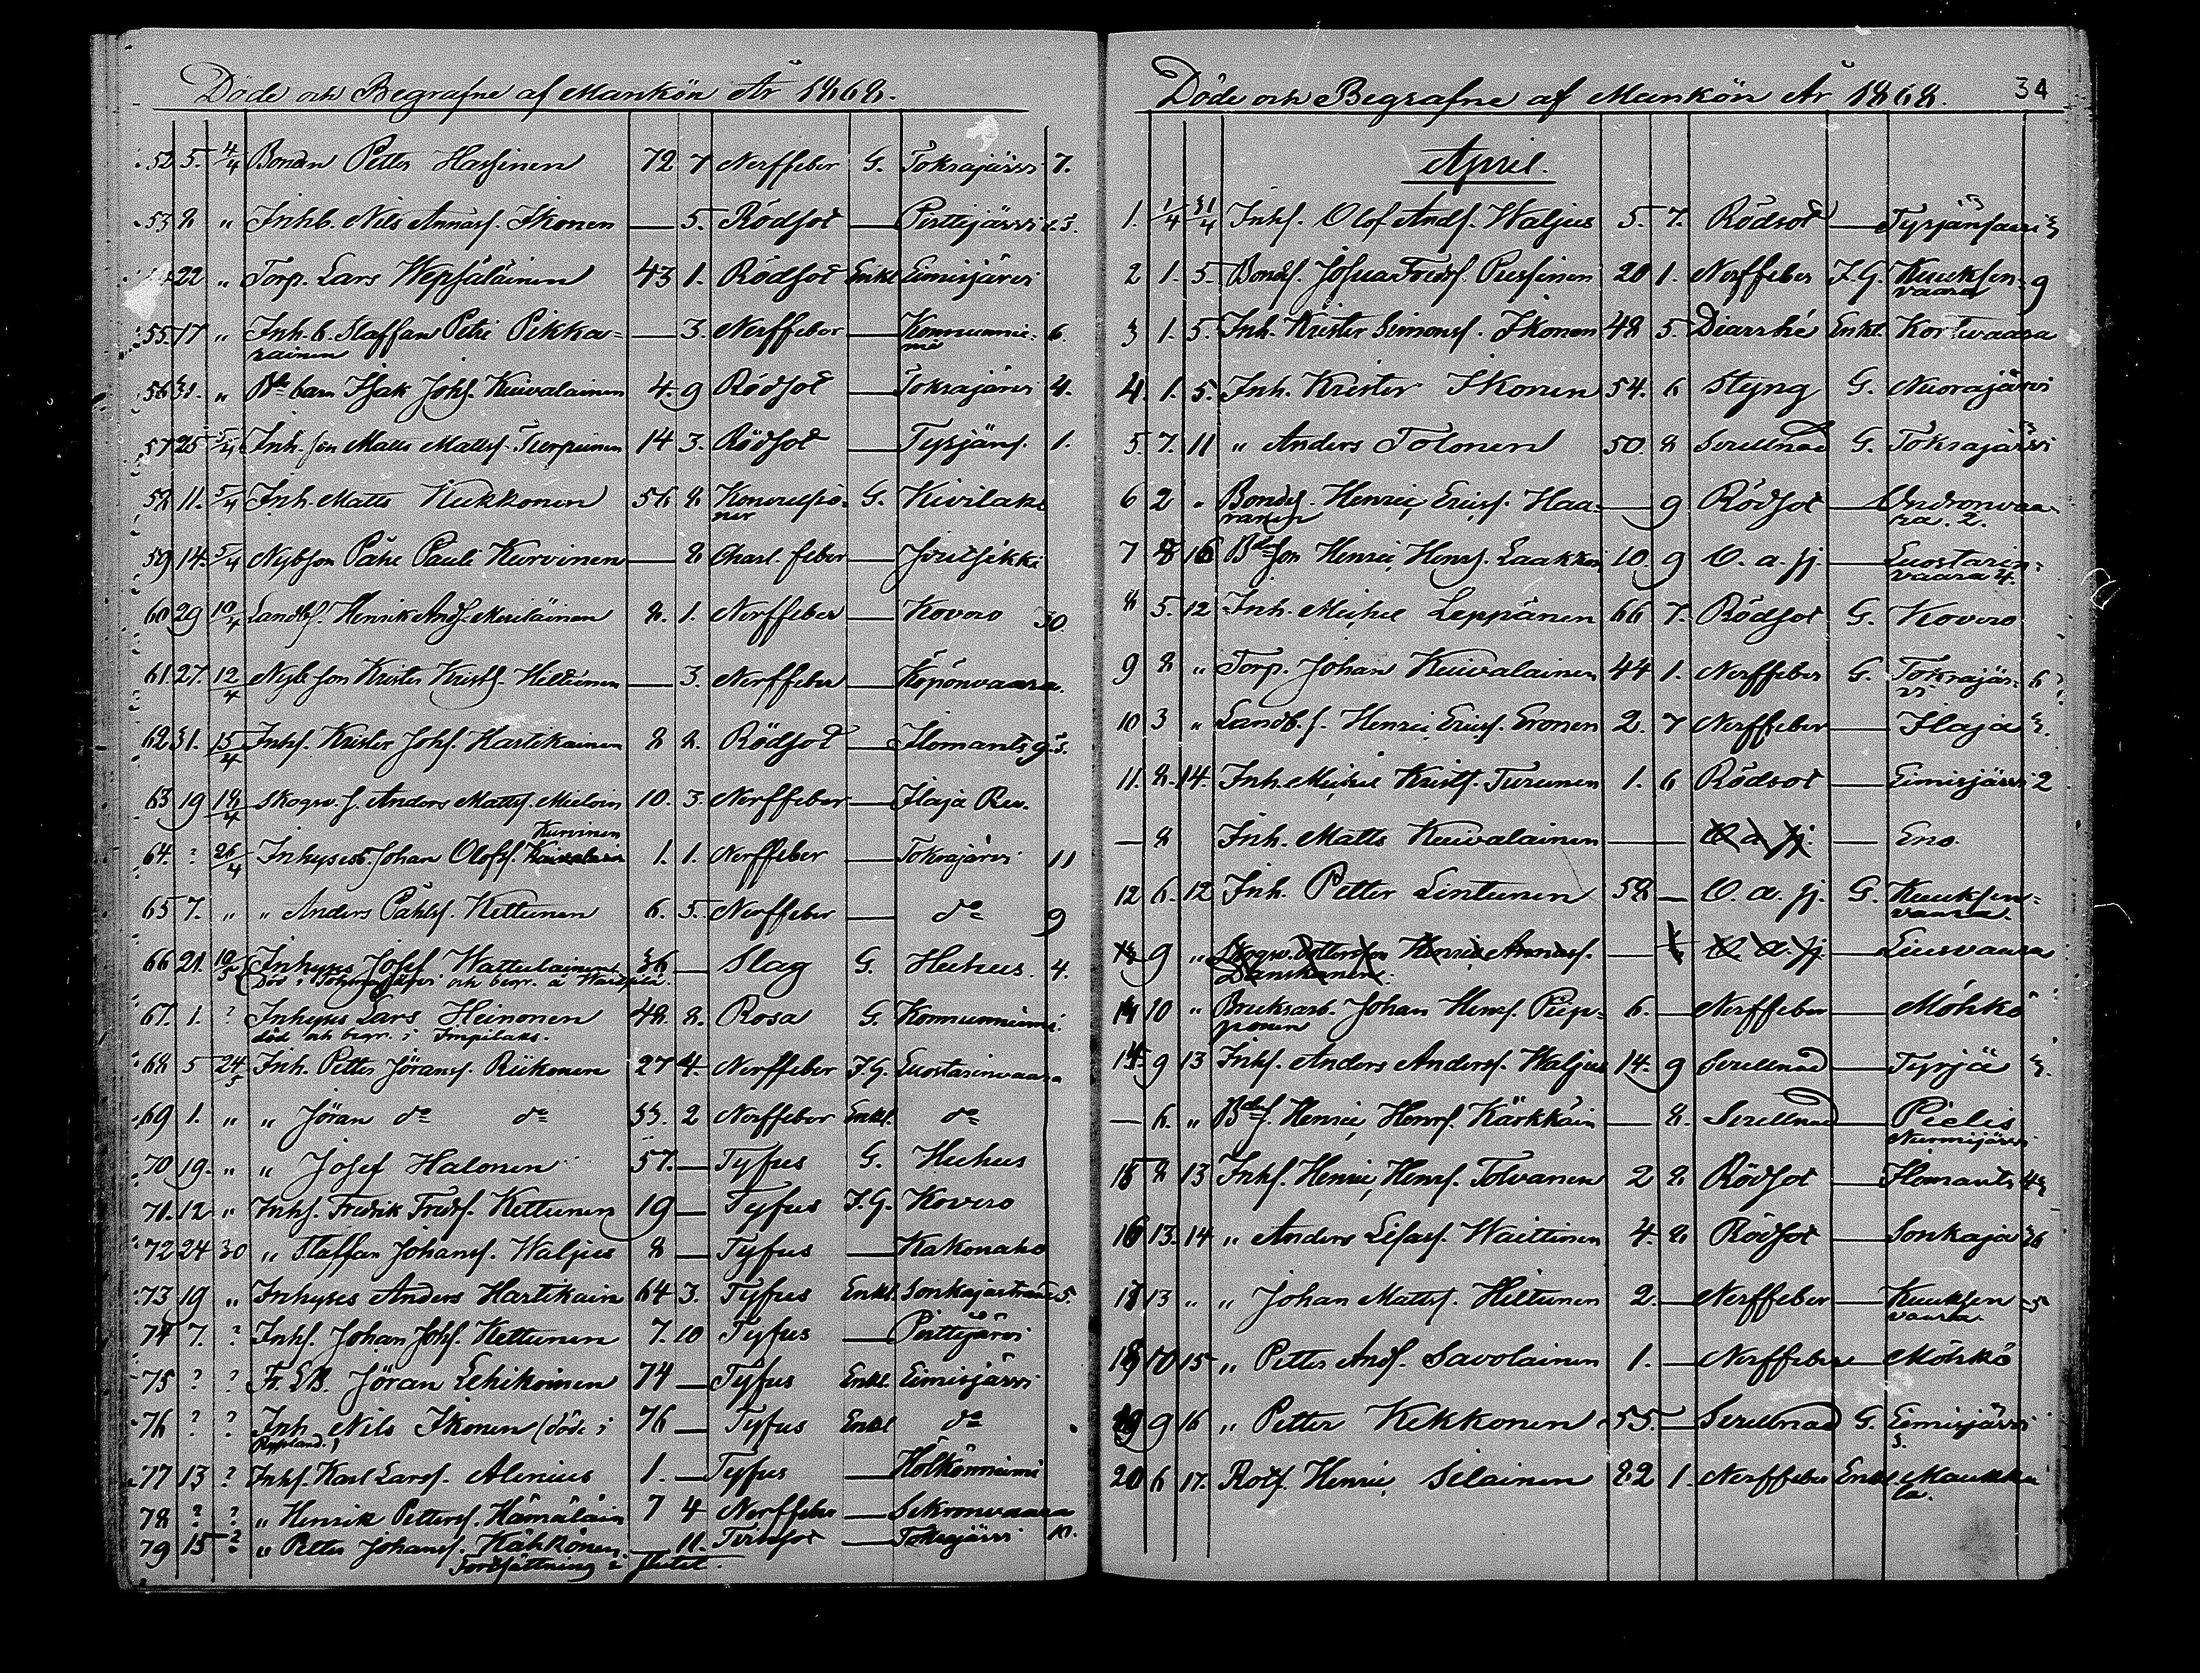 Döde och Begrafne af Mankön År 1868.
52 5. 4/4 Bonden Petter Hassinen 72. 7 Nerffeber G. Tokrajärvi 7.
53 8 " Inhb. Nils Annasf. Ikonen — 5. Rödsot — Perttijärvi
22 " Torp. Lars Wepsäläinen 43 1. Rödsot Enkl Eimisjärvi
55 17 " Inh. b. Staffan Petri Pikka= — 3. Nerffeber — 6.
rainen
56 31. " Bde barn Isak Johs. Kuivalainen 4. 9 Rödsot — Tokrajärvi 4.
57 25 Inh. son Matts Mattsf. Turpeinen 14 3. Rödsot — Tyrjäns. 1.
58 11. 5/4 Inh. Matts Kukkonen 56 8 Konvulsio= G. Kivilaks
ner
59 14. 5/4 Nybson Påhl Pauli Kurvinen — 8 Charl. feber —
60 29 10/4 Landbs. Henrik Andf. Meriläinen 8. 1. Nerffeber — Kovero 30.
61. 27. 12/4 Nyb son Krister Kristf. Hiltunen — 3. Nerffeber — Köpönvaara.
62 31. 15/4 Inhs. Krister Johs. Hartikainen 8 8. Rödsot — Ilomants
63 19 18/4 Skogv. s. Anders Mattsf. 10. 3. Nerffeber — Ilaja
Kurvinen
64. ? 26/4 Inhyses b. Johan Olofsf. 1. 1. Nerffeber — Tokrajärvi 11
65 7. " " Anders Påhlsf. Kettunen 6. 5. Nerffeber — do 9
66 21. 10/5 Inhyses Josef Wattulainen 36 — Slag G. Huhus. 4.
Död i och begr. i
67. 1. ? Inhyses Lars Heinonen 48. 8. Rosa G.
död och begr. i Impilaks.
68 5 24/5 Inh. Petter Jöransf. Riikonen 27 4. Nerffeber I.G. Luostarinvaara
69 1. " " Jöran do do 55. 2 Nerffeber Enkl. do
70 19. " " Josef Halonen 57. — Tyfus G. Huhus
71. 12 " Inhs. Fredrik Fredsf. Kettunen 19 — Tyfus I.G. Kovero
72 24 30 " Staffan Johansf. Waljus 8 — Tyfus — Kakonaho
73 19 " Inhyses Anders Hartikain 64 3. Tyfus Enkl. 5.
74 7. ? Inhs. Johan Johsf. Kettunen 7. 10 Tyfus — Perttijärvi
75 ? ? Jöran Lehikoinen 74 — Tyfus Enkl. Eimisjärvi
76 ? ? Inh. Nils Ikonen (död i 76 — Tyfus Enkl do
Ryssland.)
77 13 ? Inhs. Karl Larsf. Alenius 1. — Tyfus — Hölkönniemi
78 ? ? " Henrik Pettersf. Hämäläin 7 4 Nerffeber — Sikronvaara
79 15 ? " Petter Johansf. Kähkönen — 11. Tvinsot — Tokrajärvi 10.
Fortsättning i slutet.
Döde och Begrafne af Mankön År 1868. 34
April.
1. 1/4 31/4 Inhs. Olof Andf. Waljus 5. 7. Rödsot —
2 1. 5. Bondes. Josua Fredsf. Pussinen 20 1. Nerffeber I.G. Kuuksen= 9
vaara
3 1. 5. Inh. Krister Simonsf. Ikonen 48 5. Diarrhé Enkl. Kortevaara
4. 1. 5. Inh. Krister Ikonen 54. 6 Styng G. Nuorajärvi
5. 7. 11 " Anders Tolonen 50. 8 Svullnad G. Tokrajärvi
6 2 " Bondes. Henric Ericsf. Haa= — 9 Rödsot — Öndronvaa=
ranen ra. 2.
7 8 16 Bde son Henric Henrf. Laakkon 10. 9 O. a. sj. — Luostarin=
vaara 4.
8 5. 12 Inh. Michel Leppänen 66 7. Rödsot G. Kovero
9 8 " Torp. Johan Kuivalainen 44 1. Nerffeber G. Tokrajär= 6
vi
10 3 " Landb. s. Henric Ericsf. Eronen 2. 7 Nerffeber — Ilaja 3.
11. 8. 14. Inh. Michel Kristf. Turunen 1. 6 Rödsot — Eimisjärvi 2
— 8 Inh. Matts Kuivalainen — O. a. sj. — Eno.
12 6. 12 Inh. Petter Lintunen 58 — O. a. sj. G. Kuuksen=
vaara.
13 9 " Skogv. Henric Annasf. — O. a. sj. — Liusvaara
Danskanen.
14 10 " Bruksarb. Johan Henrf. Piip= 6. — Nerffeber — Möhkö
ponen
14. 9 13 Inhs. Anders Andersf. Waljus 14. 9 Svullnad — Tyrjä 3.
— 6. " Bdes. Henric Henrf. Kärkkäin — 8. Svullnad — Pielis
Nurmijärvi
15 8 13 Inhs. Henric Henrf. Tolvanen 2 8 Rödsot — Ilomants 43
16 13. 14 " Anders Lisasf. Waittinen 4. 8. Rödsot — Sonkaja 26
17 13 " " Johan Mattsf. Hiltunen 2. — Nerffeber — Kuuksen =5
vaara.
18 10 15 " Petter Andf. Savolainen 1. — Nerffeber — Möhkö
19 9 16 " Petter Kekkonen 55. — Svullnad G. Eimisjärvi
3.
20 6 17. Rotf. Henric Silainen 82 1. Nerffeber Enkl. Maukku
la.